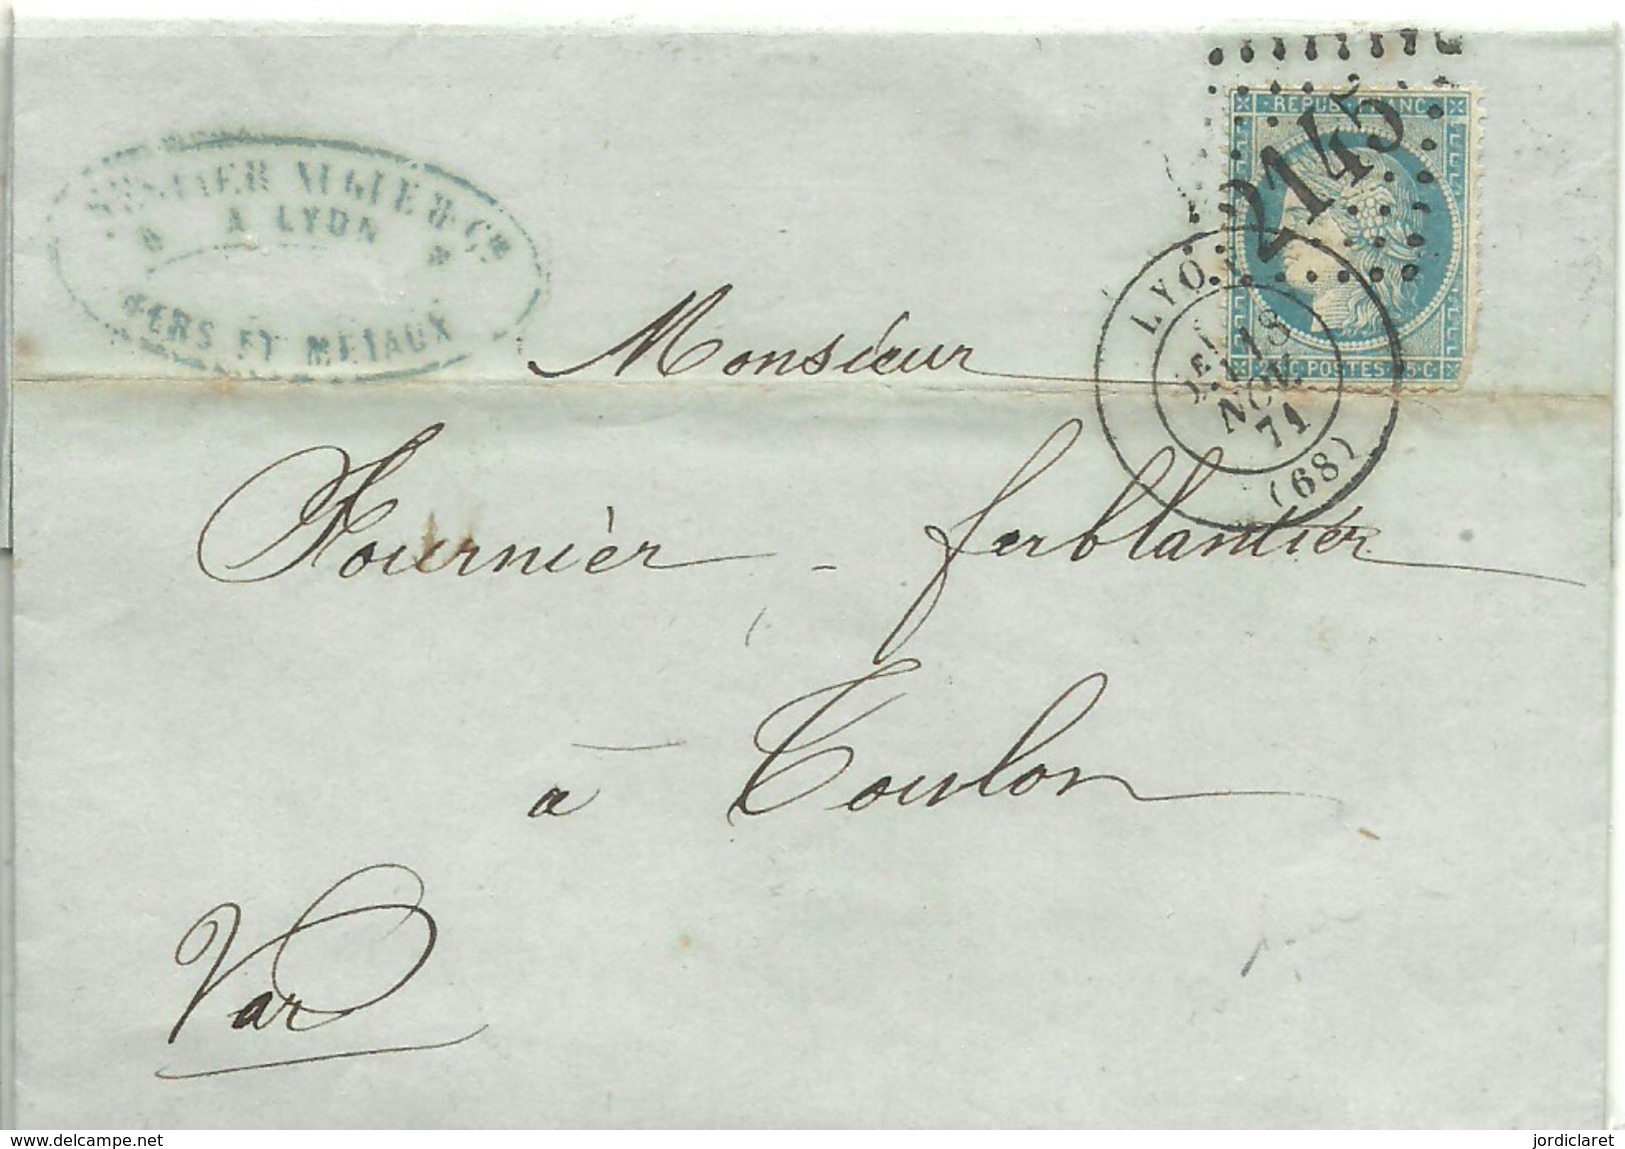 & Cie
A LYON
FERS ET METAUX
2145
REPUB FRANC
25 C POSTES 25 C
LYON
18
NOV.
71
(68)
Monsieur
Fournier - ferblantier
à Toulon
Var
www.delcampe.net
jordiclaret